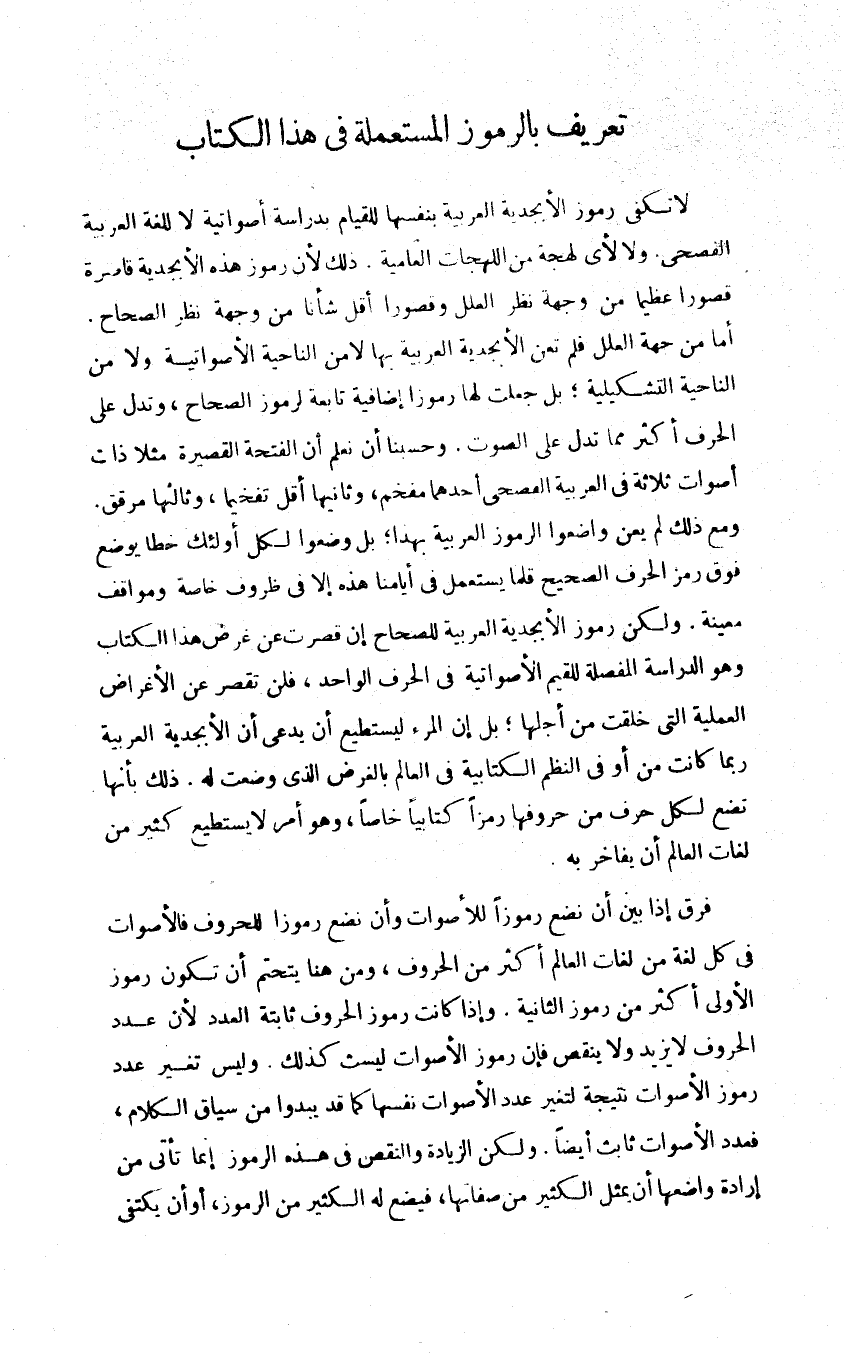 تعريف بالرموز المستعملة فى هذا الكتاب
لاتكفى رموز الأبجدية العربية بنفسها للقيام بدراسة أصواتية لا للغة العربية
الفصحى. ولا لأى لهجة من اللهجات العامية . ذلك لأن رموز هذه الأبجدية قاصرة
قصورا عظيما من وجهة نظر العلل وقصورا أقل شأنا من وجهة نظر الصحاح .
أما من جهة العلل فلم تعن الأبجدية العربية بها لامن الناحية الأصواتية ولا من
الناحية التشكيلية ؛ بل جعلت لها رموزا إضافية تابعة لرموز الصحاح ، وتدل على
الحرف أكثر مما تدل على الصوت . وحسبنا أن نعلم أن الفتحة القصيرة مثلا ذات
أصوات ثلاثة فى العربية الفصحى أحدهما مفخم، وثانيها أقل تفخيما ، وثالثها مرقق.
ومع ذلك لم يعن واضعوا الرموز العربية بهذا؛ بل وضعوا لكل أولئك خطا يوضع
فوق رمز الحرف الصحيح قلما يستعمل فى أيامنا هذه إلا فى ظروف خاصة ومواقف
معينة . ولكن رموز الأبجدية العربية للصحاح إن قصرت عن غرض هذا الكتاب
وهو الدراسة المفصلة للقيم الأصواتية فى الحرف الواحد ، فلن تقصر عن الأغراض
العملية التى خلقت من أجلها ؛ بل إن المرء ليستطيع أن يدعى أن الأبجدية العربية
ربما كانت من أو فى النظم الكتابية فى العالم بالغرض الذى وضعت له . ذلك بأنها
تضع لكل حرف من حروفها رمزاً كتابياً خاصاً ، وهو أمر لايستطيع كثير من
لغات العالم أن يفاخر به .
فرق إذا بين أن نضع رموزاً للأصوات وأن نضع رموزا للحروف فالأصوات
فى كل لغة من لغات العالم أكثر من الحروف ، ومن هنا يتحتم أن تكون رموز
الأولى أكثر من رموز الثانية . وإذا كانت رموز الحروف ثابتة العدد لأن عدد
الحروف لايزيد ولا ينقص فإن رموز الأصوات ليست كذلك . وليس تغير عدد
رموز الأصوات نتيجة لتغير عدد الأصوات نفسها كما قد يبدوا من سياق الكلام ،
فعدد الأصوات ثابت أيضاً . ولكن الزيادة والنقص فى هذه الرموز إنما تأتى من
إرادة واضعها أن يمثل الكثير من صفاتها، فيضع له الكثير من الرموز، أوأن يكتفى